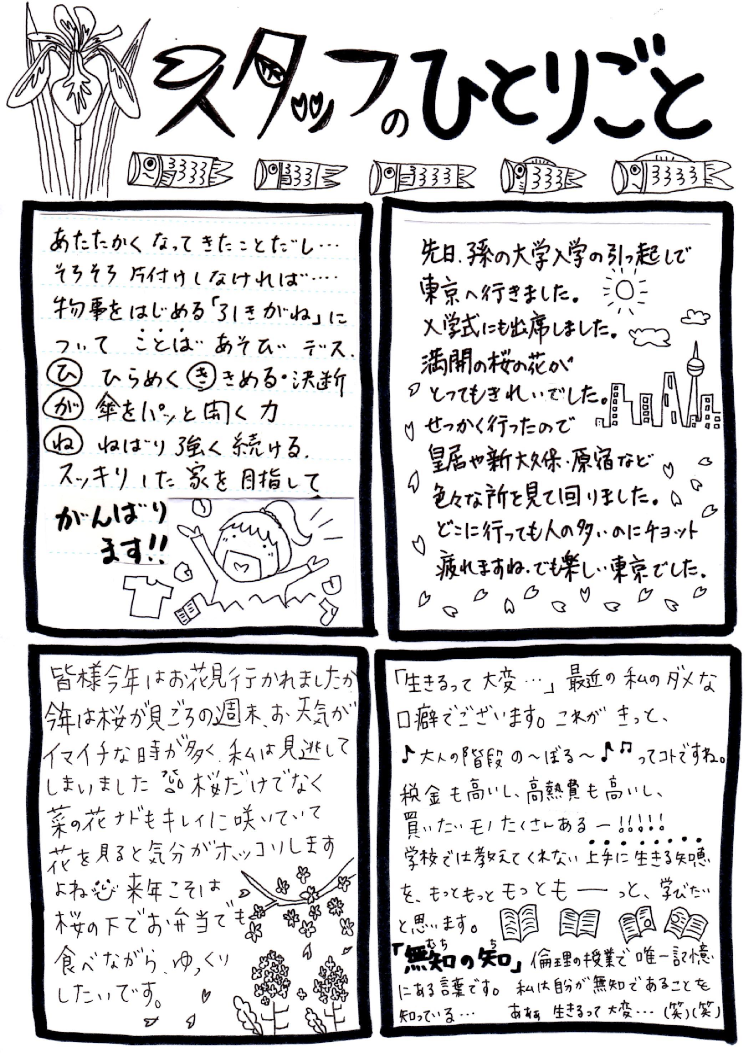 スタッフのひとりごと
あたたかくなってきたことだし…
そろそろ片付けしなければ‥‥
物事をはじめる「引きがね」に
ついて ことば あそび デス.
ひ ひらめく き きめる・決断
が 傘をパッと開く力
ね ねばり強く続ける.
スッキリした家を目指して
がんばり
ます!!
先日、孫の大学入学の引っ起しで
東京へ行きました。
入学式にも出席しました。
満開の桜の花が
とってもきれいでした。
せっかく行ったので
皇居や新大久保・原宿など
色々な所を見て回りました。
どこに行っても人の多いのにチョット
疲れますね。でも楽しい東京でした。
皆様今年はお花見行かれましたか
今年は桜が見ごろの週末、お天気が
イマイチな時が多く、私は見逃して
しまいました 桜だけでなく
菜の花ナドもキレイに咲いていて
花を見ると気分がホッコリします
よね 来年こそは
桜の下でお弁当でも
食べながら、ゆっくり
したいです。
「生きるって大変…」最近の私のダメな
口癖でございます。これがきっと、
♪大人の階段の〜ぼる〜♪♫ってコトですね。
税金も高いし、高熱費も高いし、
買いたいモノたくさんあるー!!!!!
学校では教えてくれない上手に生きる知恵
を、もっともっともっともーーっと、学びたい
と思います。
「無知の知」倫理の授業で唯一記憶
むち ち
にある言葉です。私は自分が無知であることを
知っている… あぁぁ生きるって大変…(笑)(笑)